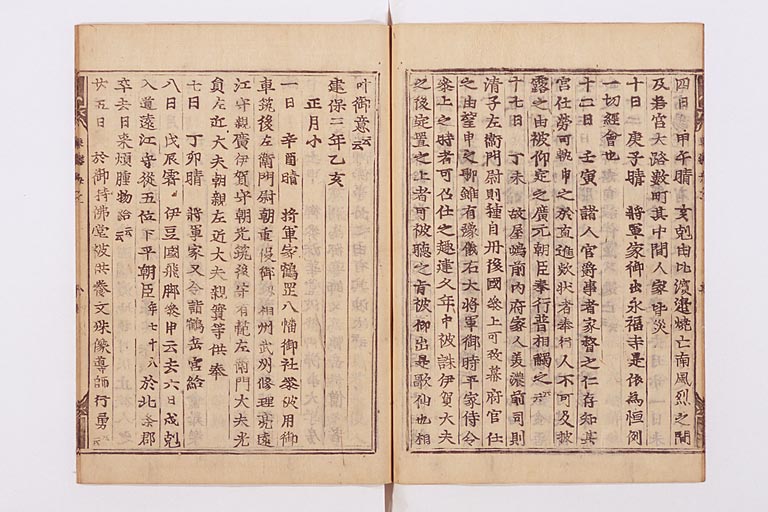 四日 甲午晴 亥剋由比濱邊燒亡南風烈之間
及若宮大路數町其中間人家皆災
十日 庚子晴 將軍家御出永福寺是依為恒例
一切經會也
十二日 壬寅 諸人官爵事者家督之仁存知其
宮仕勞可執申之於直進款狀者奉行人不可及披
露之由被仰定之廣元朝臣奉行普相觸之云云
十七日 丁未 故屋嶋前内府家人美濃前司則
清子左衛門尉則種自丹後國參上可致幕府官仕
之由望申之聊雖有豫儀右大將軍御時平家侍令
參上之時者可召仕之趣建久年中被誅伊賀大夫
之後定置之上者可被聽之旨被仰出是歌仙也相
叶御意云云
建保三年乙亥
正月小
一日 辛酉晴 將軍家鶴罡八幡御社參被用御
車筑後左衛門尉朝重候御 相州武州修理亮遠
江守親廣伊賀守朝光筑後守有範左衛門大夫光
員左近大夫朝親左近大夫親實等供奉
七日 丁卯晴 將軍家又令詣鶴岳宮給
八日 戊辰霽 伊豆國飛脚參申云去六日戌剋
入道遠江守從五位下平朝臣年七十八於北条郡
卒去日來煩腫物給云云
廿五日 於御持佛堂被供養文殊像導師行勇云云